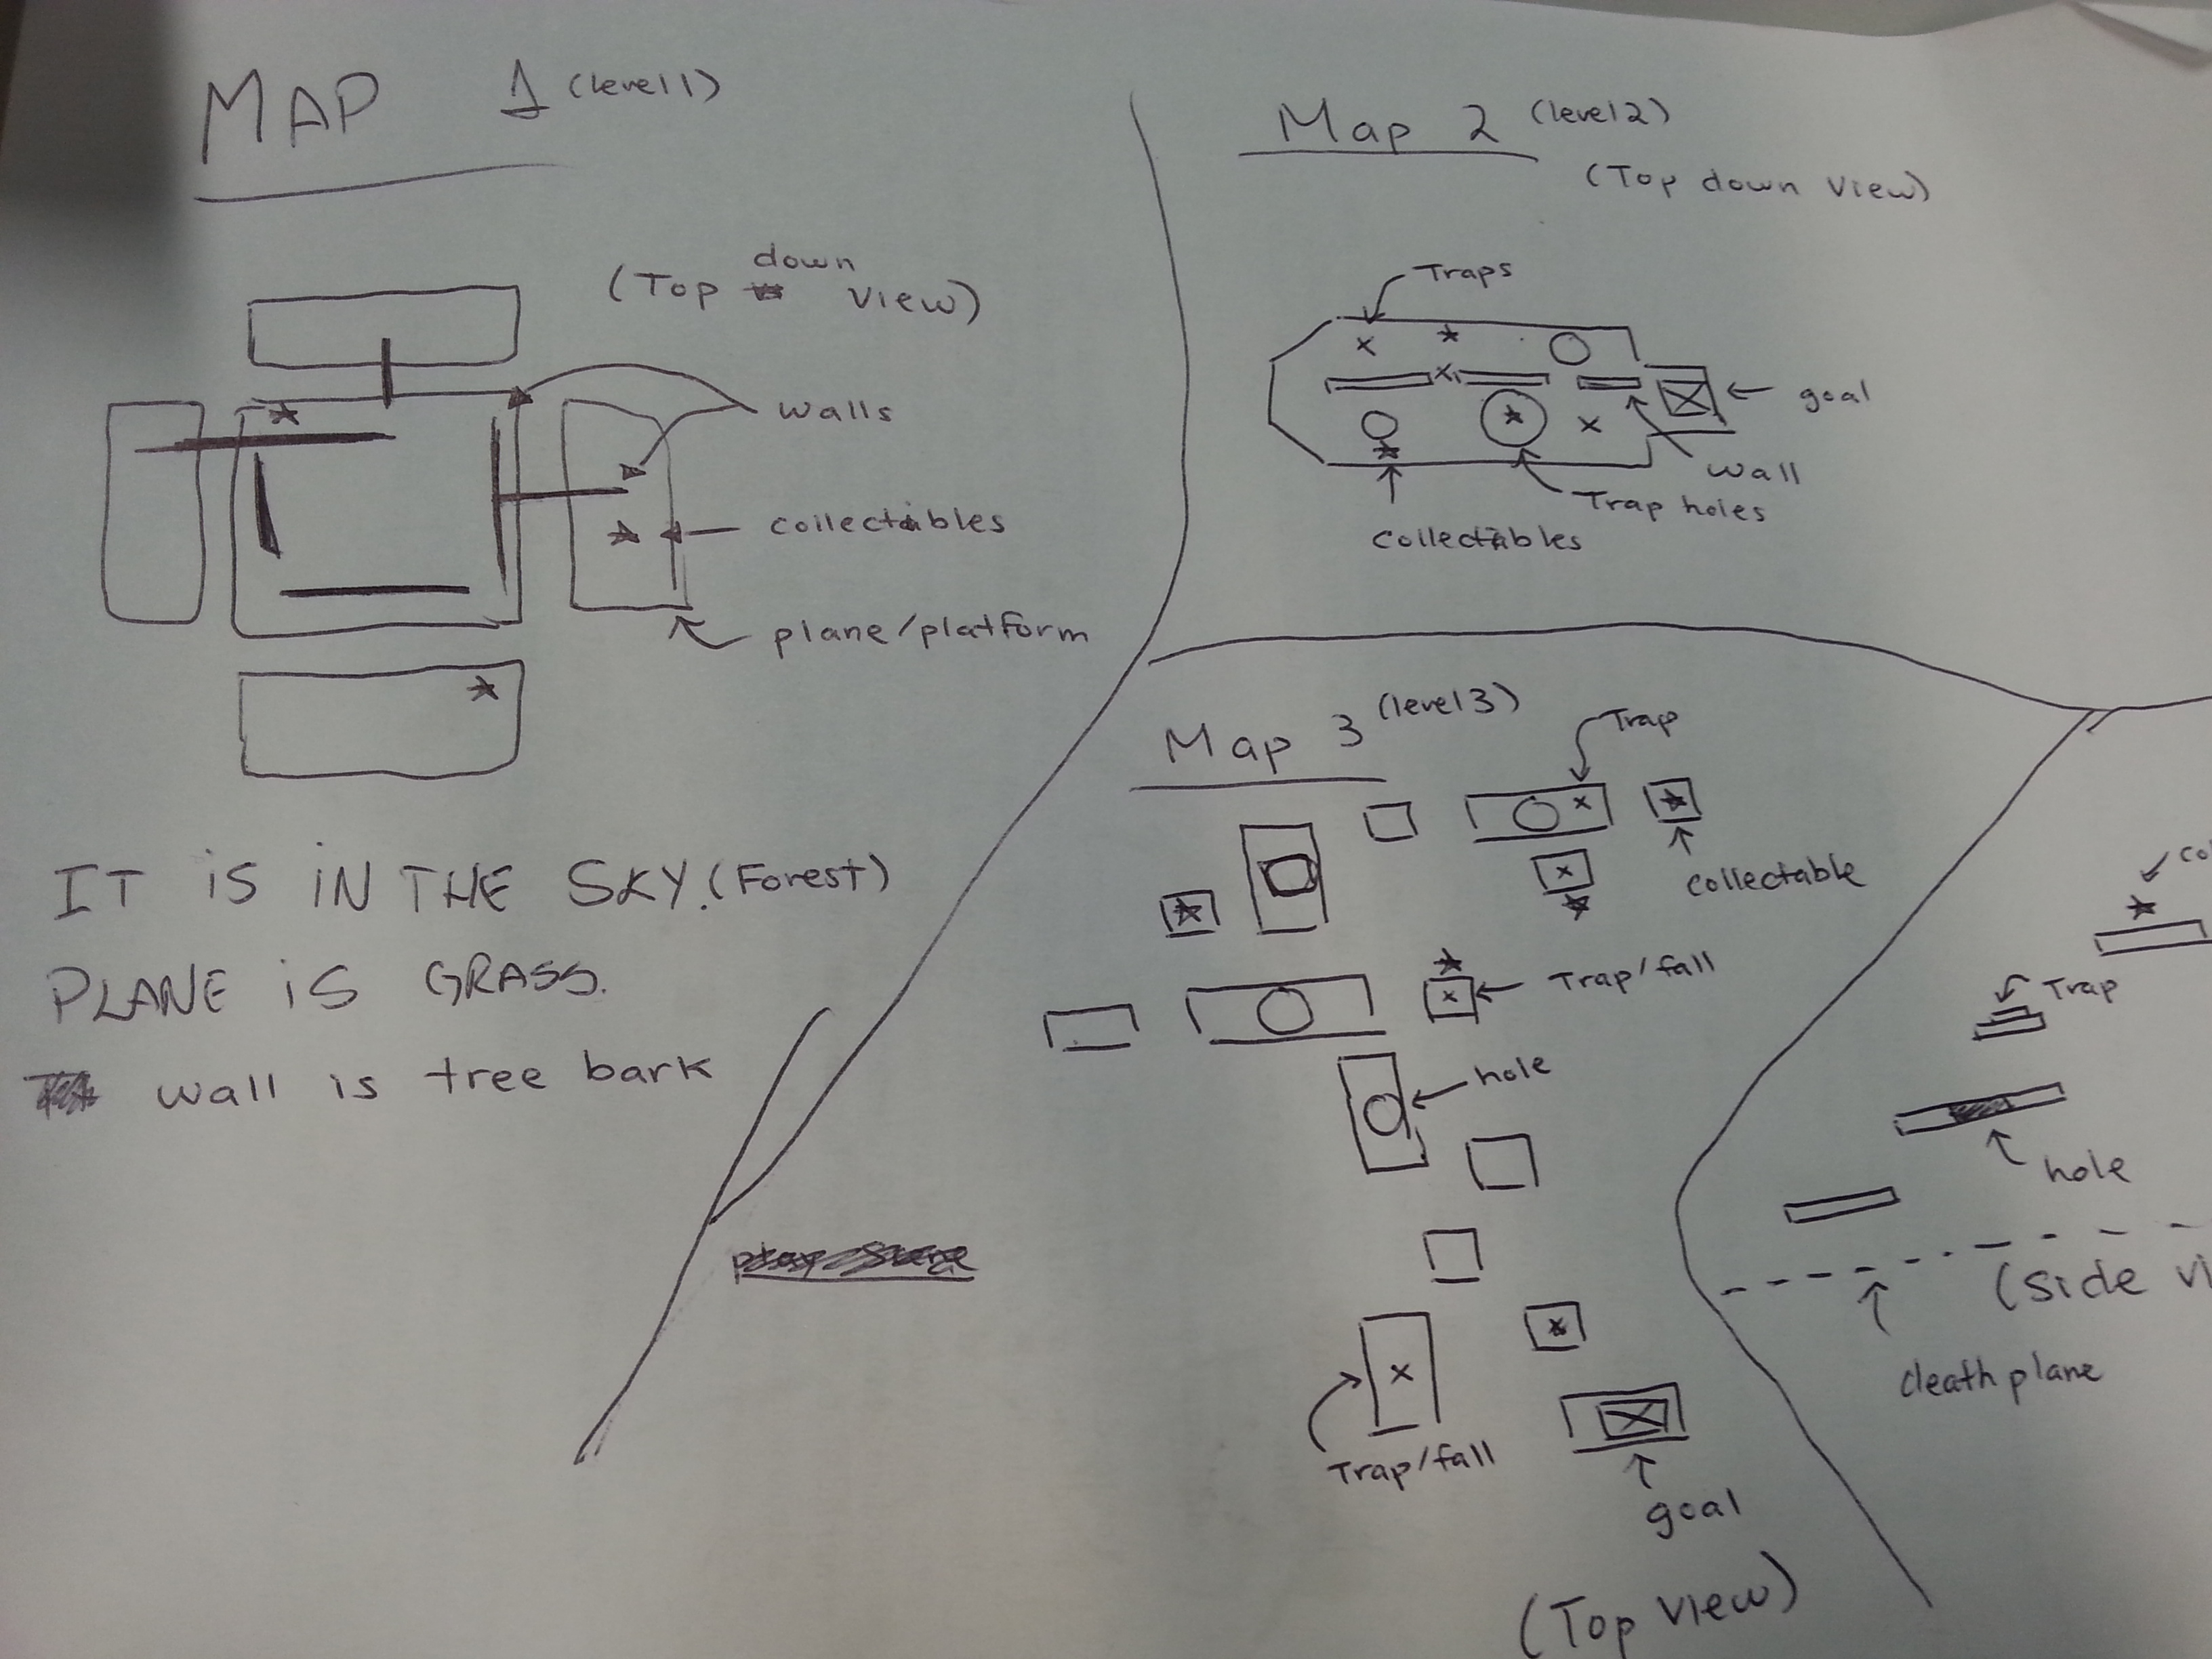 MAP 1 (level 1)
(Top down view)
walls
collectables
plane/platform
IT iS iN THE SKY. (Forest)
PLANE iS GRASS.
wall is tree bark
Map 2 (level 2)
(Top down view)
Traps
goal
wall
Trap holes
collectables
Map 3 (level 3)
Trap
collectable
Trap/fall
hole
Trap/fall
goal
(Top view)
Trap
hole
(side vi
death plane